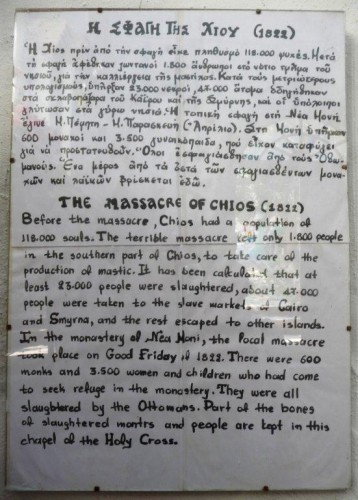 Η ΣΦΑΓΗ ΤΗΣ ΧΙΟΥ (1822)
Ἡ Χίος πρίν ἀπό τήν σφαγή εἶχε πληθυσμό 118.000 ψυχές. Μετά
τή σφαγή ἀφέθηκαν ζωντανοί 1.800 ἄνθρωποι στό νότιο τμῆμα τοῦ
νησιοῦ, γιά τήν καλλιέργεια τῆς μαστίχας. Κατά τούς μετριώτερους
ὑπολογισμούς, ὑπῆρξαν 23.000 νεκροί, 47.000 ἄτομα ὁδηγήθηκαν
στά σκλαβοπάζαρα τοῦ Καΐρου καί τῆς Σμύρνης, καί οἱ ὑπόλοιποι
γλύτωσαν στά γύρω νησιά. Ἡ τοπική σφαγή στή Νέα Μονή
ἔγινε Μ. Πέμπτη - Μ. Παρασκευή (Ἀπρίλιο). Στη Μονή ὑπῆρχαν
600 μοναχοί καί 3.500 γυναικόπαιδα, πού εἶχαν καταφύγει
γιά νά προστατευθοῦν. Ὅλοι ἐσφαγιάσθησαν ἀπό τούς Ὀθω-
μανούς. Ἕνα μέρος ἀπό τά ὀστά τῶν σφαγιασθέντων μονα-
χῶν καί λαϊκῶν βρίσκεται ἐδῶ.
THE MASSACRE OF CHIOS (1822)
Before the massacre, Chios had a population of
118.000 souls. The terrible massacre left only 1.800 people
in the southern part of Chios, to take care of the
production of mastic. It has been calculated that at
least 23.000 people were slaughtered, about 47.000
people were taken to the slave markets of Cairo
and Smyrna, and the rest escaped to other islands.
In the monastery of Nέα Moni, the local massacre
took place on Good Friday of 1822. There were 600
monks and 3.500 women and children who had come
to seek refuge in the monastery. They were all
slaughtered by the Ottomans. Part of the bones
of slaughtered monks and people are kept in this
chapel of the Holy Cross.